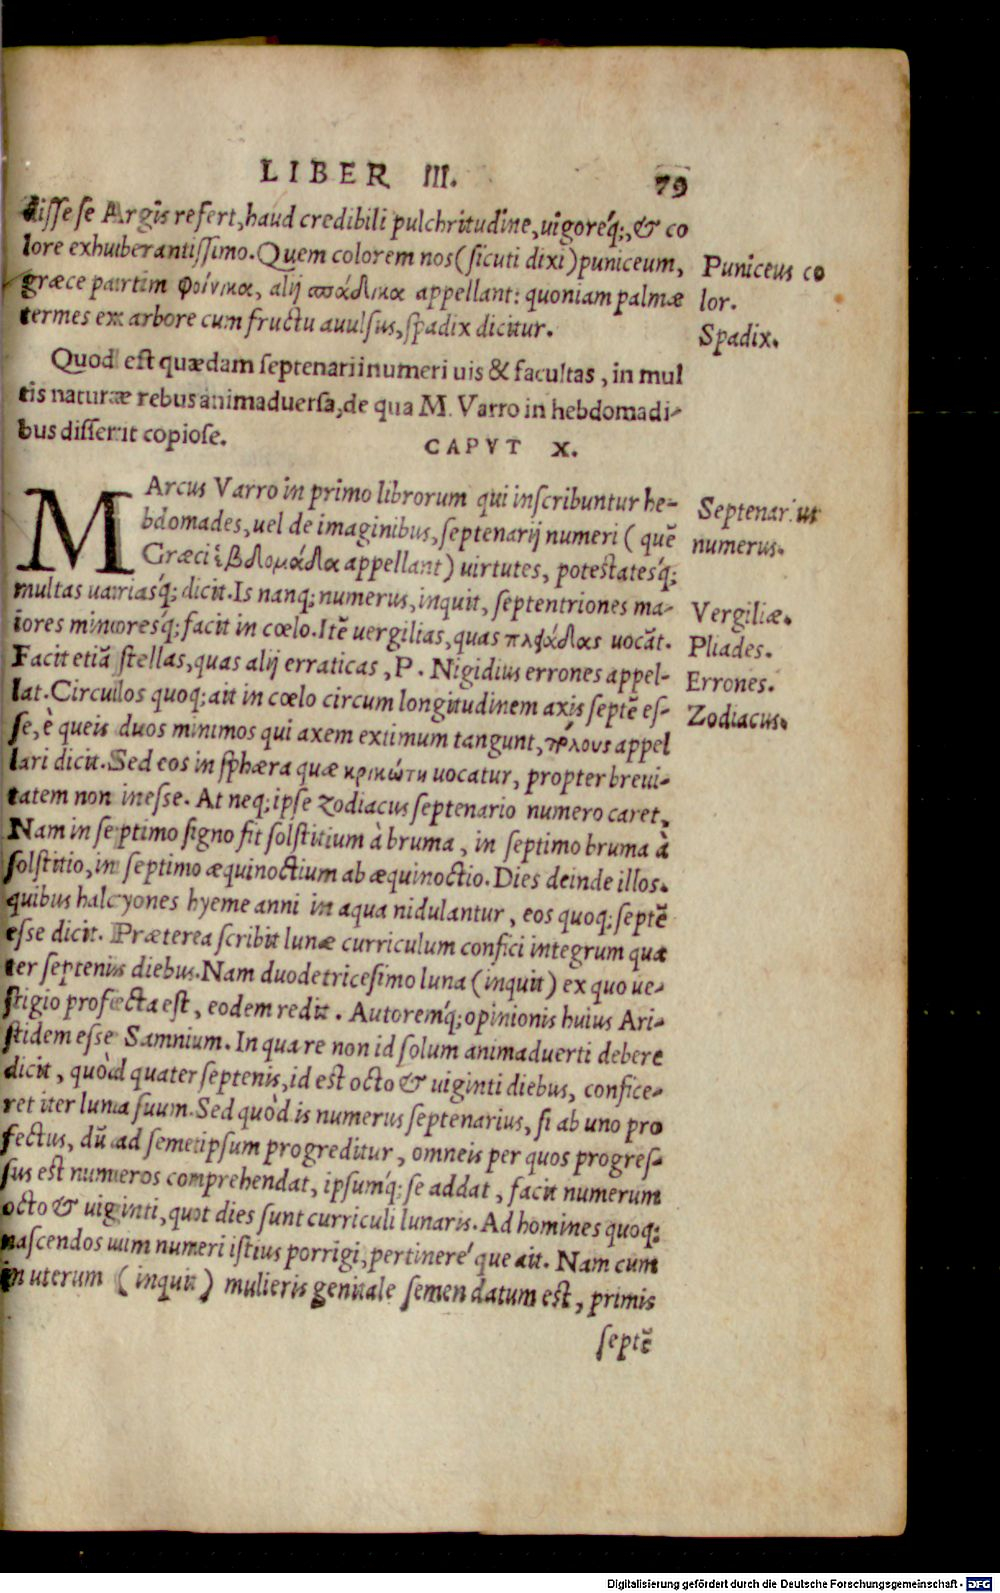 LIBER III. 79
disse se Argis refert, haud credibili pulchritudine, uigoreq́;, & co
lore exhuberantissimo. Quem colorem nos (sicuti dixi) puniceum,
græce partim φοίνικα, alij σπάδικα appellant: quoniam palmæ
termes ex arbore cum fructu auulsus, spadix dicitur.
Puniceus co
lor.
Spadix.
Quod est quædam septenarii numeri uis & facultas, in mul
tis naturæ rebus animaduersa, de qua M. Varro in hebdomadi-
bus disserit copiose.
CAPVT X.
MArcus Varro in primo librorum qui inscribuntur he-
bdomades, uel de imaginibus, septenarij numeri (quẽ
Græci ἑβδομάδα appellant) uirtutes, potestatesq́;
multas uariasq́; dicit. Is nanq; numerus, inquit, septentriones ma-
iores minoresq́; facit in cœlo. Itẽ uergilias, quas πλφάδας uocãt.
Facit etiã stellas, quas alij erraticas, P. Nigidius errones appel-
lat. Circulos quoq; ait in cœlo circum longitudinem axis septẽ es-
se, è queis duos minimos qui axem extimum tangunt, πόλους appel
lari dicit. Sed eos in sphæra quæ κρικώτη uocatur, propter breui-
tatem non inesse. At neq; ipse zodiacus septenario numero caret.
Nam in septimo signo fit solstitium à bruma, in septimo bruma à
solstitio, in septimo æquinoctium ab æquinoctio. Dies deinde illos.
quibus halcyones hyeme anni in aqua nidulantur, eos quoq; septẽ
esse dicit. Præterea scribit lunæ curriculum confici integrum qua
ter septenis diebus. Nam duodetricesimo luna (inquit) ex quo ue-
stigio profecta est, eodem redit. Autoremq́; opinionis huius Ari-
stidem esse Samnium. In qua re non id solum animaduerti debere
dicit, quòd quater septenis, id est octo & uiginti diebus, confice-
ret iter luna suum. Sed quòd is numerus septenarius, si ab uno pro
fectus, dũ ad semetipsum progreditur, omneis per quos progres-
sus est numeros comprehendat, ipsumq́; se addat, facit numerum
octo & uiginti, quot dies sunt curriculi lunaris. Ad homines quoq;
nascendos uim numeri istius porrigi, pertinere´que ait. Nam cum
in uterum (inquit) mulieris genitale semen datum est, primis
septẽ
Septenarius
numerus.
Vergiliæ.
Pliades.
Errones.
Zodiacus.
Digitalisierung gefördert durch die Deutsche Forschungsgemeinschaft - DFG